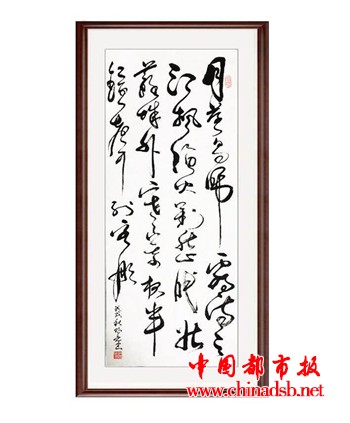 月落烏啼霜滿天
江楓漁火對愁眠姑
蘇城外寒山寺夜半
鐘聲到客船
中国都市报
www.chinadsb.net